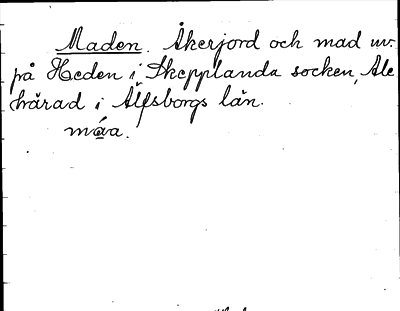 Maden. Åkerjord och mad
på Heden i Skepplanda socken, Ale
härad i Älfsborgs län.
måa.